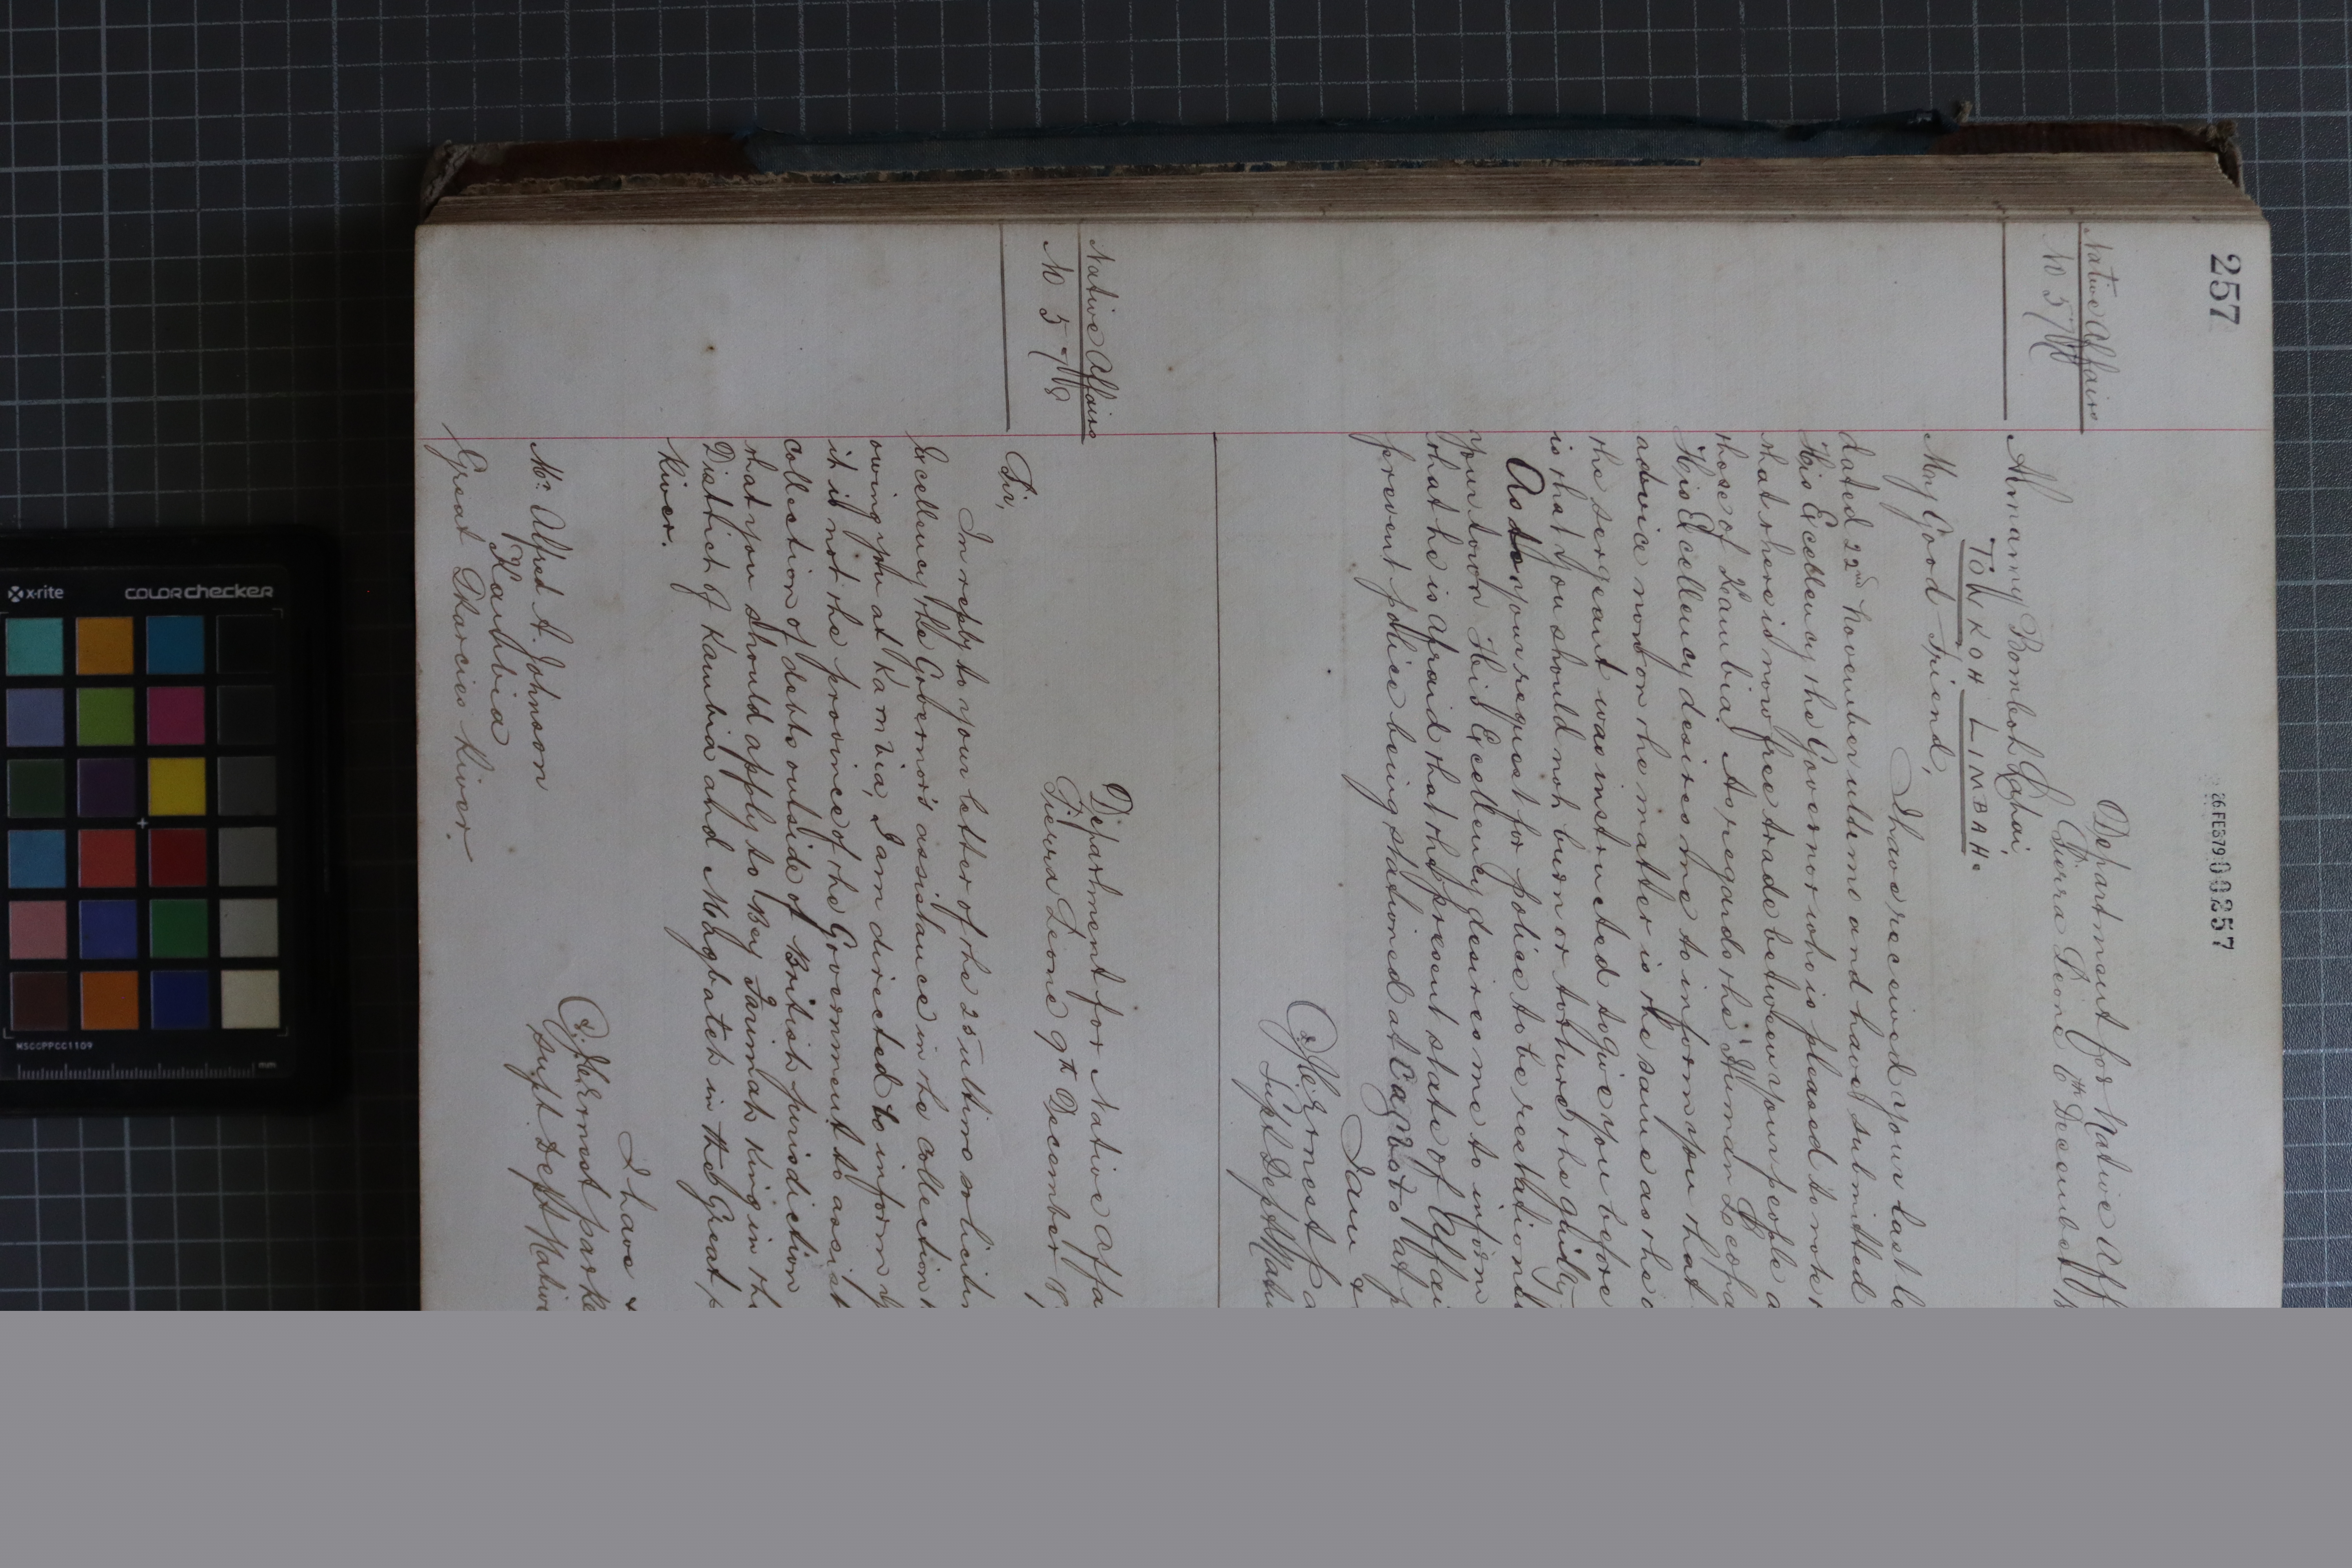 257
26 FEB 79 00257
Native Affairs
Department for Native Aff
Sierra Leone 6th December
Almamy Bomboh Lahai,
TOWKOH LIMBAH.
My Good Friend,
I have received your last
dated 22nd November ultimo and have submitted
His Excellency the Governor who is pleased to note
that there is now free trade between your people a
those of Kambia. As regards the Human Leopa
His Excellency desires me to inform you that
advice now on the matter is the same as the
the sergeant was instructed to give you before
is that you should not burn or torture the guilty
As to your request for police to be restation
your town His Excellency desires me to inform
that he is afraid that the present state of Affai
prevent police being stationed at to at p
I am &
J. C. Ernest Pa
Supt Dept Nati
Native Affairs
No 5
Department for Native Affa
Sierra Leone 9th December
Sir,
In reply to your letter of the 25 ultimo soliciti
Excellency the Governor's assistance in the collection
owing you at Kambia, I am directed to inform y
it is not the province of the Government to assist
collection of debts outside of British jurisdiction
that you should apply to Bey Farimah King in th
District of Kambia and Magbateh in the Great
River.
I have &
J. C. Ernest Parke
Supt Dept Native
Mr. Alfred A. Johnson
Kambia
Great Scarcies River.
x-rite
COLORchecker
MSCCPPCC1109
mm